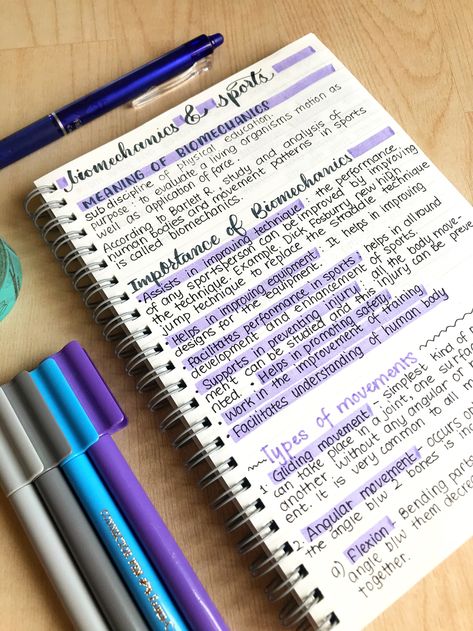 biomechanics & sports
MEANING OF BIOMECHANICS
sub discipline of physical education.
purpose: to evaluate a living organisms motion as
well as application of force.
According to Bartlett R., study and analysis of
human bodies and movement patterns in sports
is called biomechanics.
Importance of Biomechanics
• Assists in improving technique: the performance
of any sportsperson can be improved by improving
the technique. Example, Dick fosbury flew high
jump technique to replace the straddle technique
• Helps in improving equipment: It helps in improving
designs for the equipment.
• Facilitates performance in sports: helps in allround
development and enhancement of sports.
• Supports in preventing injury: all the body move-
ment can be studied and this injury can be preve
nted. • Helps in promoting safety
• Work in the improvement of training
• Facilitates understanding of human body
Types of movements
1. Gliding movement: simplest kind of
can take place in a joint, one surfa
another without any angular or
ent. It is very common to all
2. Angular movement: occurs
the angle b/w 2 bones is inc
a) Flexion - Bending parts
angle b/w them decre
together.